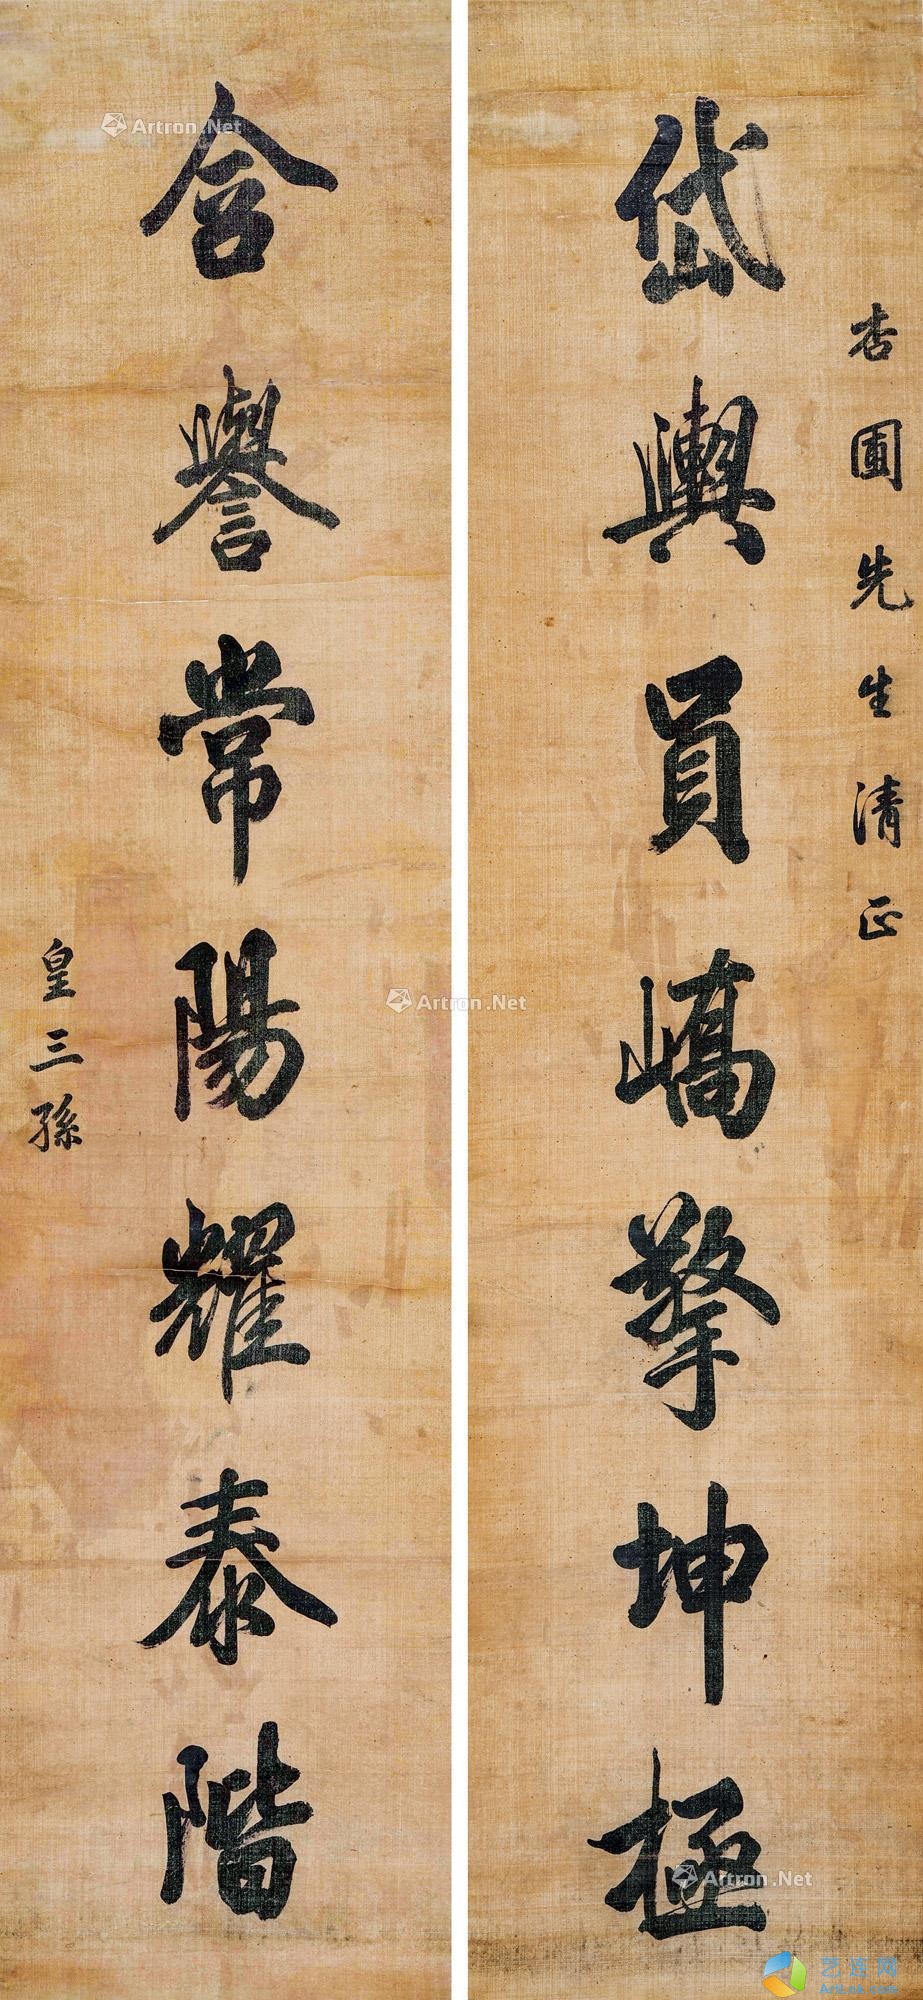 杏圃先生清正
岱輿員嶠擎坤極
含譽常陽耀泰階
皇三孫
Artron.Net
Artron.Net
Artron.Net
艺连网